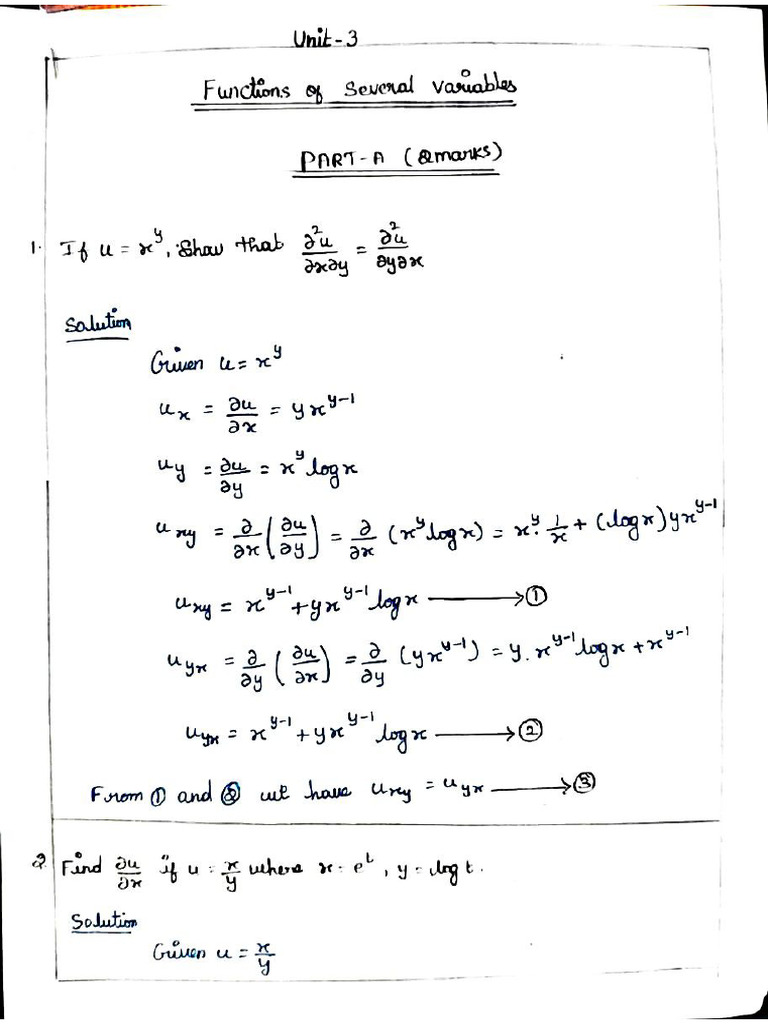 Unit-3
Functions of Several Variables
PART-A (2marks)
1. If u = x^y, Show that ∂²u/∂x∂y = ∂²u/∂y∂x
Solution
Given u = x^y
u_x = ∂u/∂x = y x^(y-1)
u_y = ∂u/∂y = x^y log x
u_xy = ∂/∂x (∂u/∂y) = ∂/∂x (x^y log x) = x^y · 1/x + (log x) y x^(y-1)
u_xy = x^(y-1) + y x^(y-1) log x ⟶ ①
u_yx = ∂/∂y (∂u/∂x) = ∂/∂y (y x^(y-1)) = y · x^(y-1) log x + x^(y-1)
u_yx = x^(y-1) + y x^(y-1) log x ⟶ ②
From ① and ② we have u_xy = u_yx ⟶ ③
2. Find ∂u/∂x if u = x/y where x = e^t, y = log t.
Solution
Given u = x/y